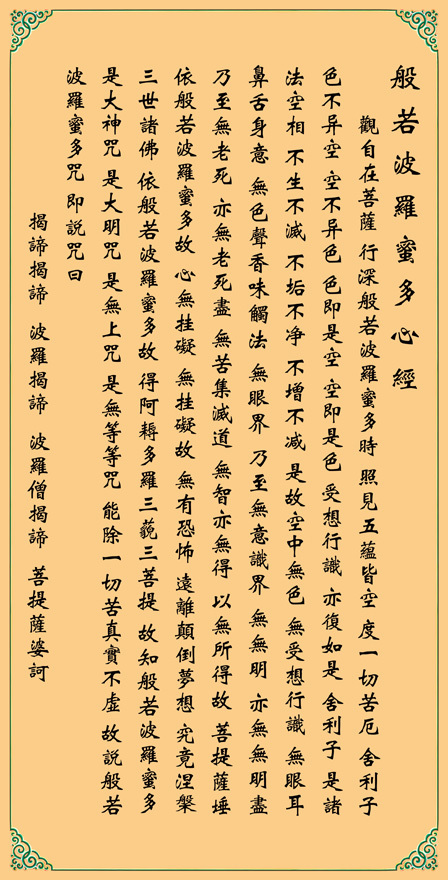 般若波羅蜜多心經
觀自在菩薩 行深般若波羅蜜多時 照見五蘊皆空 度一切苦厄 舍利子
色不异空 空不异色 色即是空 空即是色 受想行識 亦復如是 舍利子 是諸
法空相 不生不滅 不垢不净 不增不减 是故空中無色 無受想行識 無眼耳
鼻舌身意 無色聲香味觸法 無眼界 乃至無意識界 無無明 亦無無明盡
乃至無老死 亦無老死盡 無苦集滅道 無智亦無得 以無所得故 菩提薩埵
依般若波羅蜜多故 心無挂礙 無挂礙故 無有恐怖 遠離顛倒夢想 究竟涅槃
三世諸佛 依般若波羅蜜多故 得阿耨多羅三藐三菩提 故知般若波羅蜜多
是大神咒 是大明咒 是無上咒 是無等等咒 能除一切苦真實不虛 故説般若
波羅蜜多咒 即説咒曰
揭諦揭諦 波羅揭諦 波羅僧揭諦 菩提薩婆訶